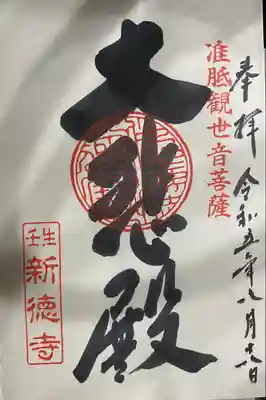 奉拝 令和五年八月十八日
准胝觀世音菩薩
大悲殿
壬生
新徳寺